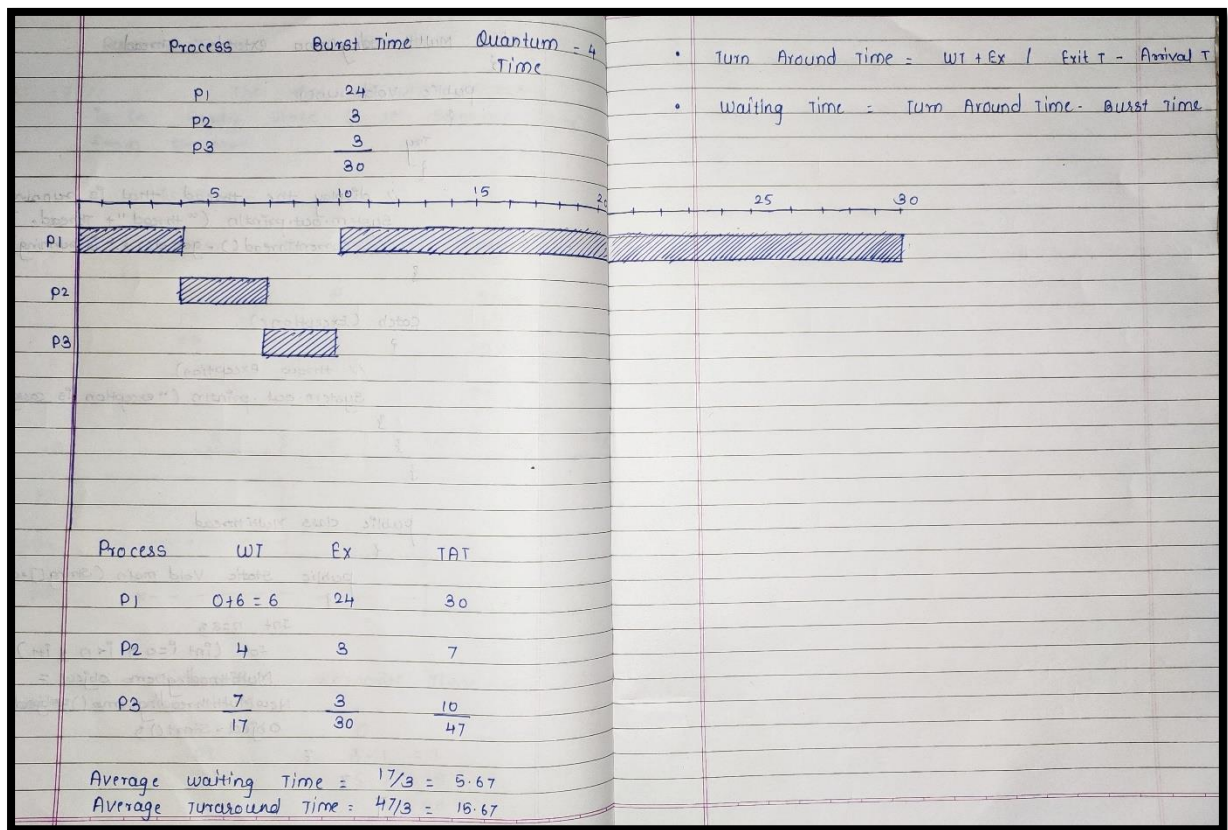 Process Burst Time Quantum Time = 4
P1 24
P2 3
P3 3
30
5 10 15 20
P1
P2
P3
Process WT Ex TAT
P1 0+6 = 6 24 30
P2 4 3 7
P3 7 3 10
17 30 47
Average waiting Time = 17/3 = 5.67
Average Turaround Time = 47/3 = 15.67
• Turn Around Time = WT + Ex / Exit T - Arrival T
• Waiting Time = Turn Around Time - Burst Time
25 30